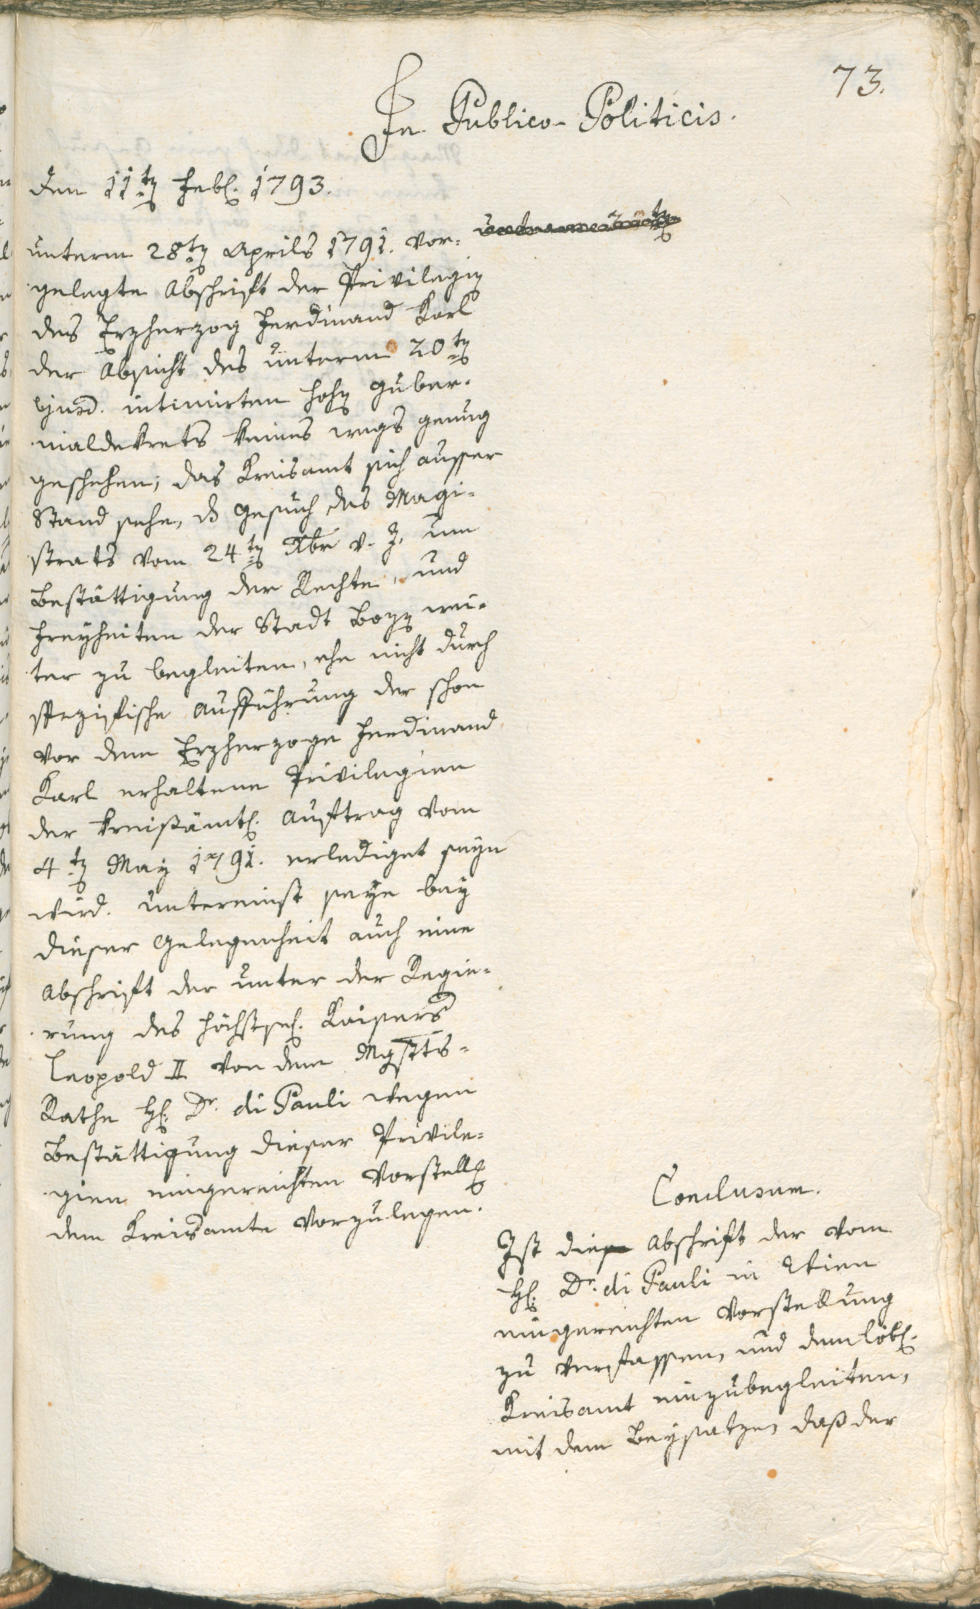 73.
In Publico-Politicis.
Den 11ten Febr. 1793.
unterm 28ten Aprils 1791. vor=
gelegte Abschrift der Privilegien
des Erzherzog Ferdinand Karl
der Absicht des unterm 20ten
ejusd. intimirten hohen Guber=
nialdekrets keines wegs genug
geschehen; das Kreisamt sich ausser
Stand sehe, das Gesuch des Magi=
strats vom 24ten Xbr v. J. um
Bestättigung der Rechte, und
Freyheiten der Stadt Bozen wei=
ter zu begleiten, ehe nicht durch
spezifische Ausführung der schon
vor dem Erzherzoge Ferdinand
Karl erhaltene Privilegien
der kreißämtl. Auftrag vom
4ten May 1791. erlediget seyn
wird. untereinst seye bey
dieser Gelegenheit auch eine
Abschrift der unter der Regie=
rung des höchstsel. Kaisers
Leopold II von dem Mgstts=
Rathe H. Dr. di Pauli wegen
Bestättigung dieser Privile=
gien eingereichten Vorstellung
dem Kreisamte vorzulegen.
Conclusum.
Ist die Abschrift der vom
H. Dr. di Pauli in Wien
eingereichten Vorstellung
zu verfassen, und dem löbl.
Kreisamt einzubegleiten,
mit dem Beysatze, daß der